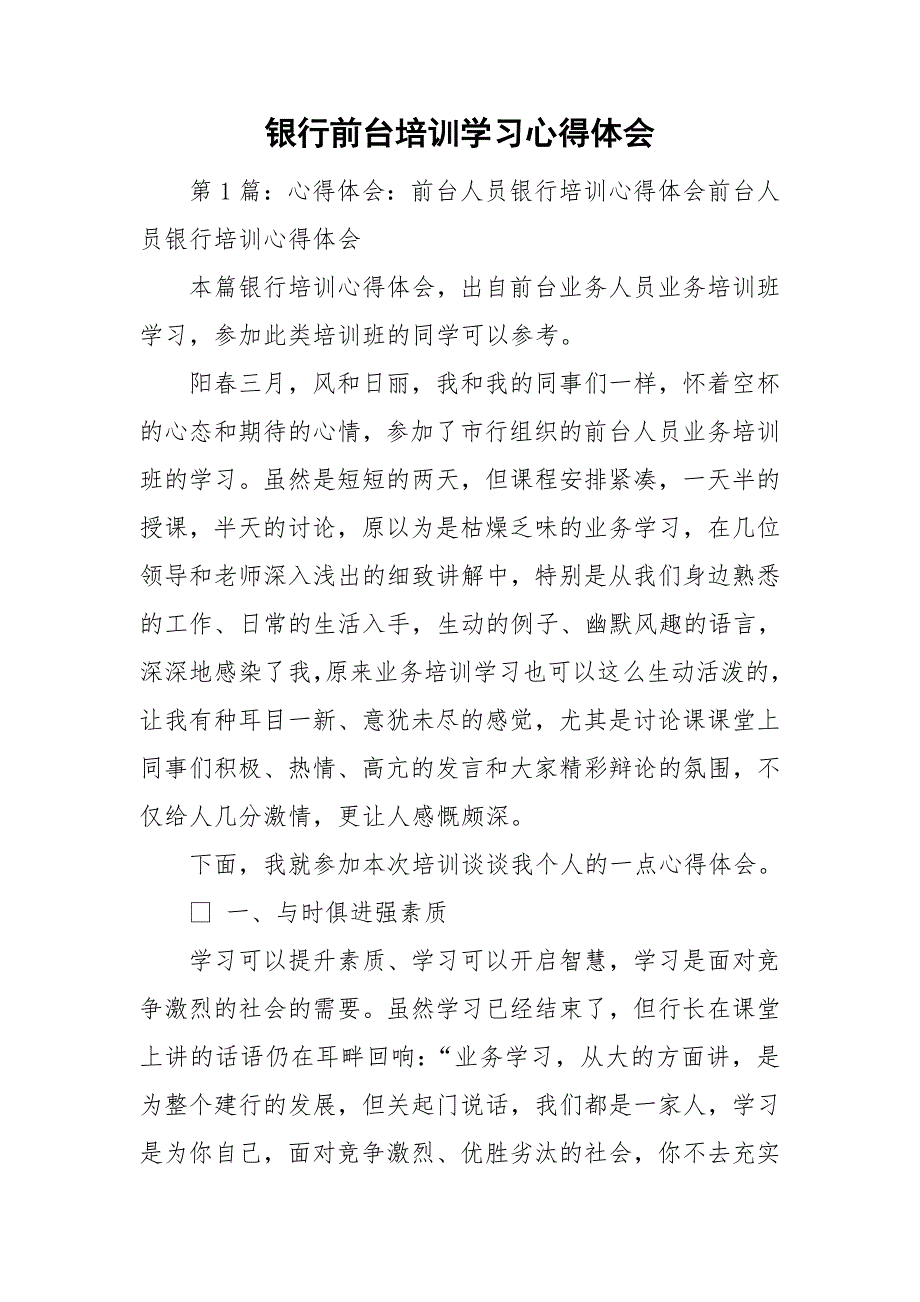 银行前台培训学习心得体会
第 1 篇：心得体会：前台人员银行培训心得体会前台人
员银行培训心得体会
本篇银行培训心得体会，出自前台业务人员业务培训班
学习，参加此类培训班的同学可以参考。
阳春三月，风和日丽，我和我的同事们一样，怀着空杯
的心态和期待的心情，参加了市行组织的前台人员业务培训
班的学习。虽然是短短的两天，但课程安排紧凑，一天半的
授课，半天的讨论，原以为是枯燥乏味的业务学习，在几位
领导和老师深入浅出的细致讲解中，特别是从我们身边熟悉
的工作、日常的生活入手，生动的例子、幽默风趣的语言，
深深地感染了我，原来业务培训学习也可以这么生动活泼的，
让我有种耳目一新、意犹未尽的感觉，尤其是讨论课课堂上
同事们积极、热情、高亢的发言和大家精彩辩论的氛围，不
仅给人几分激情，更让人感慨颇深。
下面，我就参加本次培训谈谈我个人的一点心得体会。
□ 一、与时俱进强素质
学习可以提升素质、学习可以开启智慧，学习是面对竞
争激烈的社会的需要。虽然学习已经结束了，但行长在课堂
上讲的话语仍在耳畔回响：“业务学习，从大的方面讲，是
为整个建行的发展，但关起门说话，我们都是一家人，学习
是为你自己，面对竞争激烈、优胜劣汰的社会，你不去充实